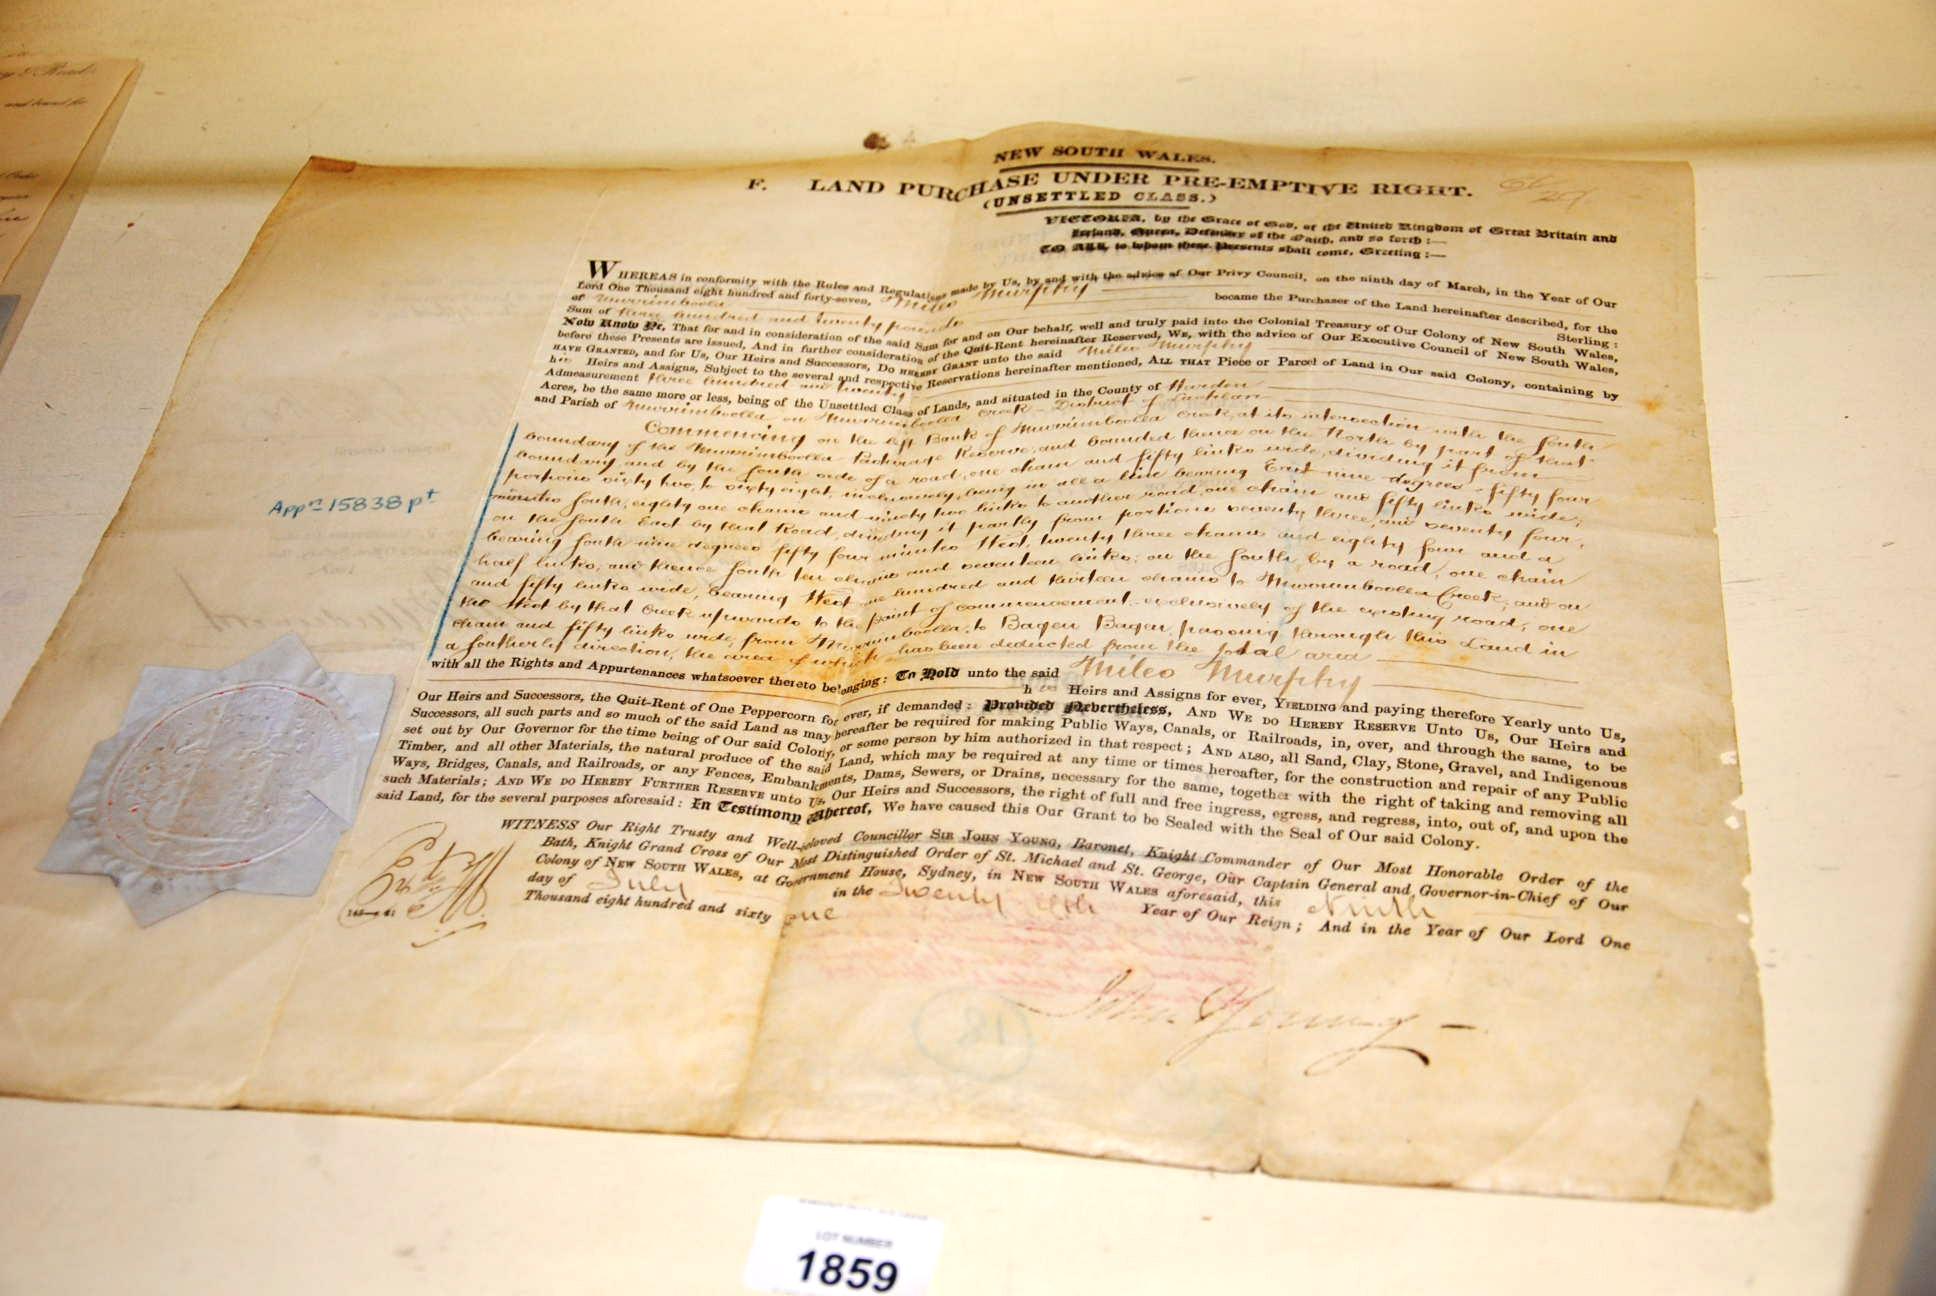 NEW SOUTH WALES.
F. LAND PURCHASE UNDER PRE-EMPTIVE RIGHT.
(UNSETTLED CLASS.)
VICTORIA, by the Grace of God, of the United Kingdom of Great Britain and
Ireland, Queen, Defender of the Faith, and so forth :—
TO ALL, to whom these Presents shall come, Greeting :—
WHEREAS in conformity with the Rules and Regulations made by Us, by and with the advice of Our Privy Council, on the ninth day of March, in the Year of Our
Lord One Thousand eight hundred and forty-seven, Miles Murphy
of Murrimboola became the Purchaser of the Land hereinafter described, for the
Sum of three hundred and twenty pounds Sterling :
Now Know Ye, That for and in consideration of the said Sum for and on Our behalf, well and truly paid into the Colonial Treasury of Our Colony of New South Wales,
before these Presents are issued, And in further consideration of the Quit-Rent hereinafter Reserved, WE, with the advice of Our Executive Council of New South Wales,
HAVE GRANTED, and for Us, Our Heirs and Successors, DO HEREBY GRANT unto the said Miles Murphy
his Heirs and Assigns, Subject to the several and respective Reservations hereinafter mentioned, ALL THAT Piece or Parcel of Land in Our said Colony, containing by
Admeasurement three hundred and twenty
Acres, be the same more or less, being of the Unsettled Class of Lands, and situated in the County of Harden
and Parish of Murrimboola on Murrimboola Creek - District of Lachlan
Commencing on the left Bank of Murrimboola Creek, at its intersection with the South
boundary of the Murrimboolla Pasturage Reserve, and bounded thence on the North by part of that
boundary, and by the South side of a road, one chain and fifty links wide, dividing it from
portions sixty two, to sixty eight, inclusively, being in all a line bearing East nine degrees fifty four
minutes South, eighty one chains and ninety two links to another road, one chain and fifty links wide;
on the South East by that Road, dividing it partly from portions seventy three, and seventy four,
bearing South nine degrees fifty four minutes West, twenty three chains and eighty four and a
half links, and thence South ten chains and seventeen links; on the South by a road, one chain
and fifty links wide, bearing West one hundred and thirteen chains to Murrumboolla Creek; and on
the West by that Creek upwards to the point of commencement - exclusively of the existing road, one
chain and fifty links wide, from Murrimboolla, to Bagen Bagen, passing through this Land in
a Southerly direction, the area of which has been deducted from the total area
with all the Rights and Appurtenances whatsoever thereto belonging : To Hold unto the said Miles Murphy
his Heirs and Assigns for ever, YIELDING and paying therefore Yearly unto Us,
Our Heirs and Successors, the Quit-Rent of One Peppercorn for ever, if demanded : Provided Nevertheless, AND WE DO HEREBY RESERVE Unto Us, Our Heirs and
Successors, all such parts and so much of the said Land as may hereafter be required for making Public Ways, Canals, or Railroads, in, over, and through the same, to be
set out by Our Governor for the time being of Our said Colony, or some person by him authorized in that respect ; AND ALSO, all Sand, Clay, Stone, Gravel, and Indigenous
Timber, and all other Materials, the natural produce of the said Land, which may be required at any time or times hereafter, for the construction and repair of any Public
Ways, Bridges, Canals, and Railroads, or any Fences, Embankments, Dams, Sewers, or Drains, necessary for the same, together with the right of taking and removing all
such Materials ; AND WE DO HEREBY FURTHER RESERVE unto Us, Our Heirs and Successors, the right of full and free ingress, egress, and regress, into, out of, and upon the
said Land, for the several purposes aforesaid : In Testimony Whereof, We have caused this Our Grant to be Sealed with the Seal of Our said Colony.
WITNESS Our Right Trusty and Well-beloved Councillor SIR JOHN YOUNG, Baronet, Knight Commander of Our Most Honorable Order of the
Bath, Knight Grand Cross of Our Most Distinguished Order of St. Michael and St. George, Our Captain General and Governor-in-Chief of Our
Colony of NEW SOUTH WALES, at Government House, Sydney, in NEW SOUTH WALES aforesaid, this Ninth
day of July in the Twenty fifth Year of Our Reign ; And in the Year of Our Lord One
Thousand eight hundred and sixty one
John Young
Appn 15838 pt
18
LOT NUMBER
1859